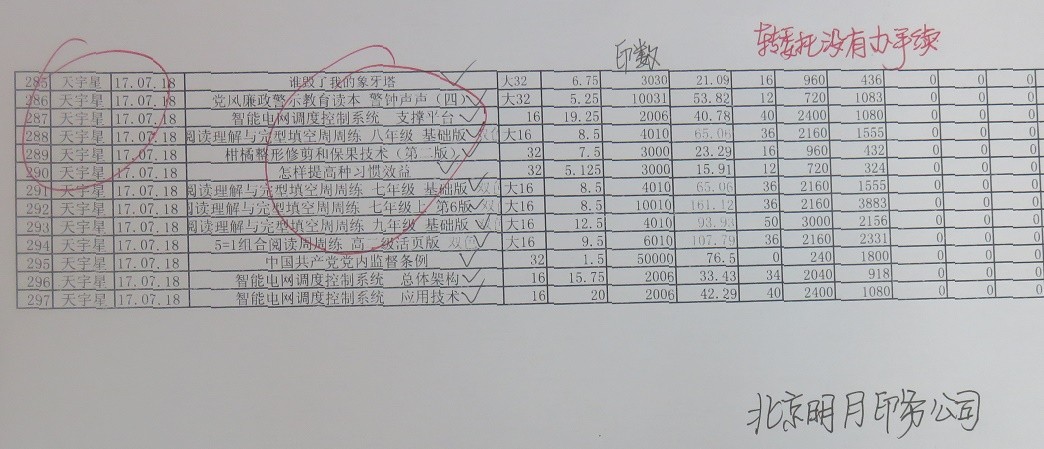 转委托没有办手续
印数
285 天宇星 17.07.18 谁毁了我的象牙塔 大32 6.75 3030 21.09 16 960 436 0 0 0
286 天宇星 17.07.18 党风廉政警示教育读本 警钟声声（四） 大32 5.25 10031 53.82 12 720 1083 0 0 0
287 天宇星 17.07.18 智能电网调度控制系统 支撑平台 16 19.25 2006 40.78 40 2400 1080 0 0 0
288 天宇星 17.07.18 阅读理解与完型填空周周练 八年级 基础版 双色 大16 8.5 4010 65.06 36 2160 1555 0 0 0
289 天宇星 17.07.18 柑橘整形修剪和保果技术（第二版） 32 7.5 3000 23.29 16 960 432 0 0 0
290 天宇星 17.07.18 怎样提高种习惯效益 32 5.125 3000 15.91 12 720 324 0 0 0
291 天宇星 17.07.18 阅读理解与完型填空周周练 七年级 基础版 双色 大16 8.5 4010 65.06 36 2160 1555 0 0 0
292 天宇星 17.07.18 阅读理解与完型填空周周练 七年级上 第6版 双色 大16 8.5 10010 161.12 36 2160 3883 0 0 0
293 天宇星 17.07.18 阅读理解与完型填空周周练 九年级 基础版 双色 大16 12.5 4010 93.93 50 3000 2156 0 0 0
294 天宇星 17.07.18 5=1组合阅读周周练 高二级活页版 双色 大16 9.5 6010 107.79 36 2160 2331 0 0 0
295 天宇星 17.07.18 中国共产党党内监督条例 32 1.5 50000 76.5 0 240 1800 0 0 0
296 天宇星 17.07.18 智能电网调度控制系统 总体架构 16 15.75 2006 33.43 34 2040 918 0 0 0
297 天宇星 17.07.18 智能电网调度控制系统 应用技术 16 20 2006 42.29 40 2400 1080 0 0 0
北京明月印务公司